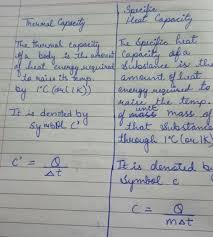 Thermal Capacity
The thermal capacity
of a body is the amount
of heat energy required
to raise its temp.
by 1°C (or 1K)
It is denoted by
Symbol C'
C' = Q
Δt
Specific
Heat Capacity
The Specific heat
Capacity of a
Substance is the
amount of heat
energy required to
raise the temp.
of mass unit mass of
that substance
through 1°C (or 1K)
It is denoted by
symbol c
C = Q
mΔt